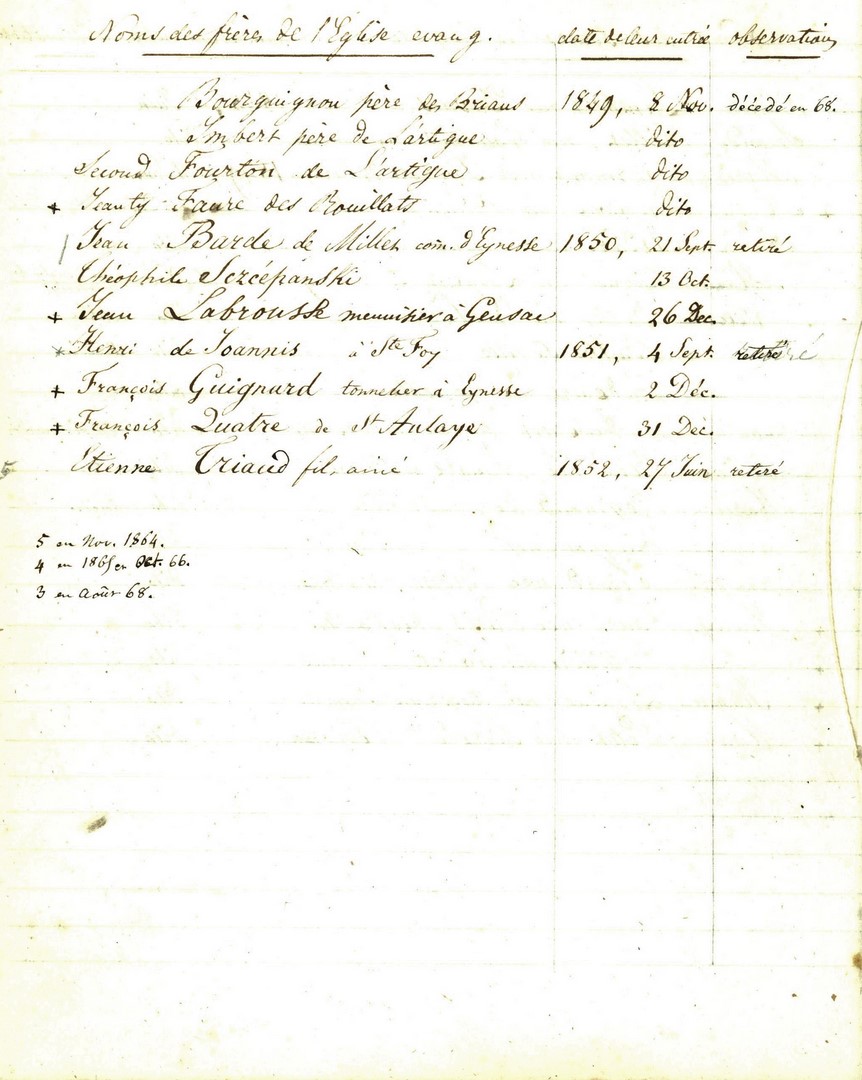 Noms des frères de l'Eglise evang. date de leur entrée observations
Bourguignon père des Briaus 1849, 2 Nov. décedé en 68.
Imbert père de Lartigue dito
Second Fourton de L'artigue. dito
+ Jeanty Faure des Rouillats dito
Jean Barde de Millet com. d'Eynesse 1850, 21 Sept. retiré
Théophile Sczcépanski 13 Oct.
+ Jean Labrousse menuisier à Gensac 26 Dec.
+ Henri de Joannis à Ste Foy 1851, 4 Sept. retiré
+ François Guignard tonnelier à Eynesse 2 Déc.
+ François Quatre de St Aulaye 31 Dec.
Etienne Triaud fils ainé 1852, 27 Juin retiré
5 en Nov. 1864.
4 en 1865 en Oct. 66.
3 en Août 68.